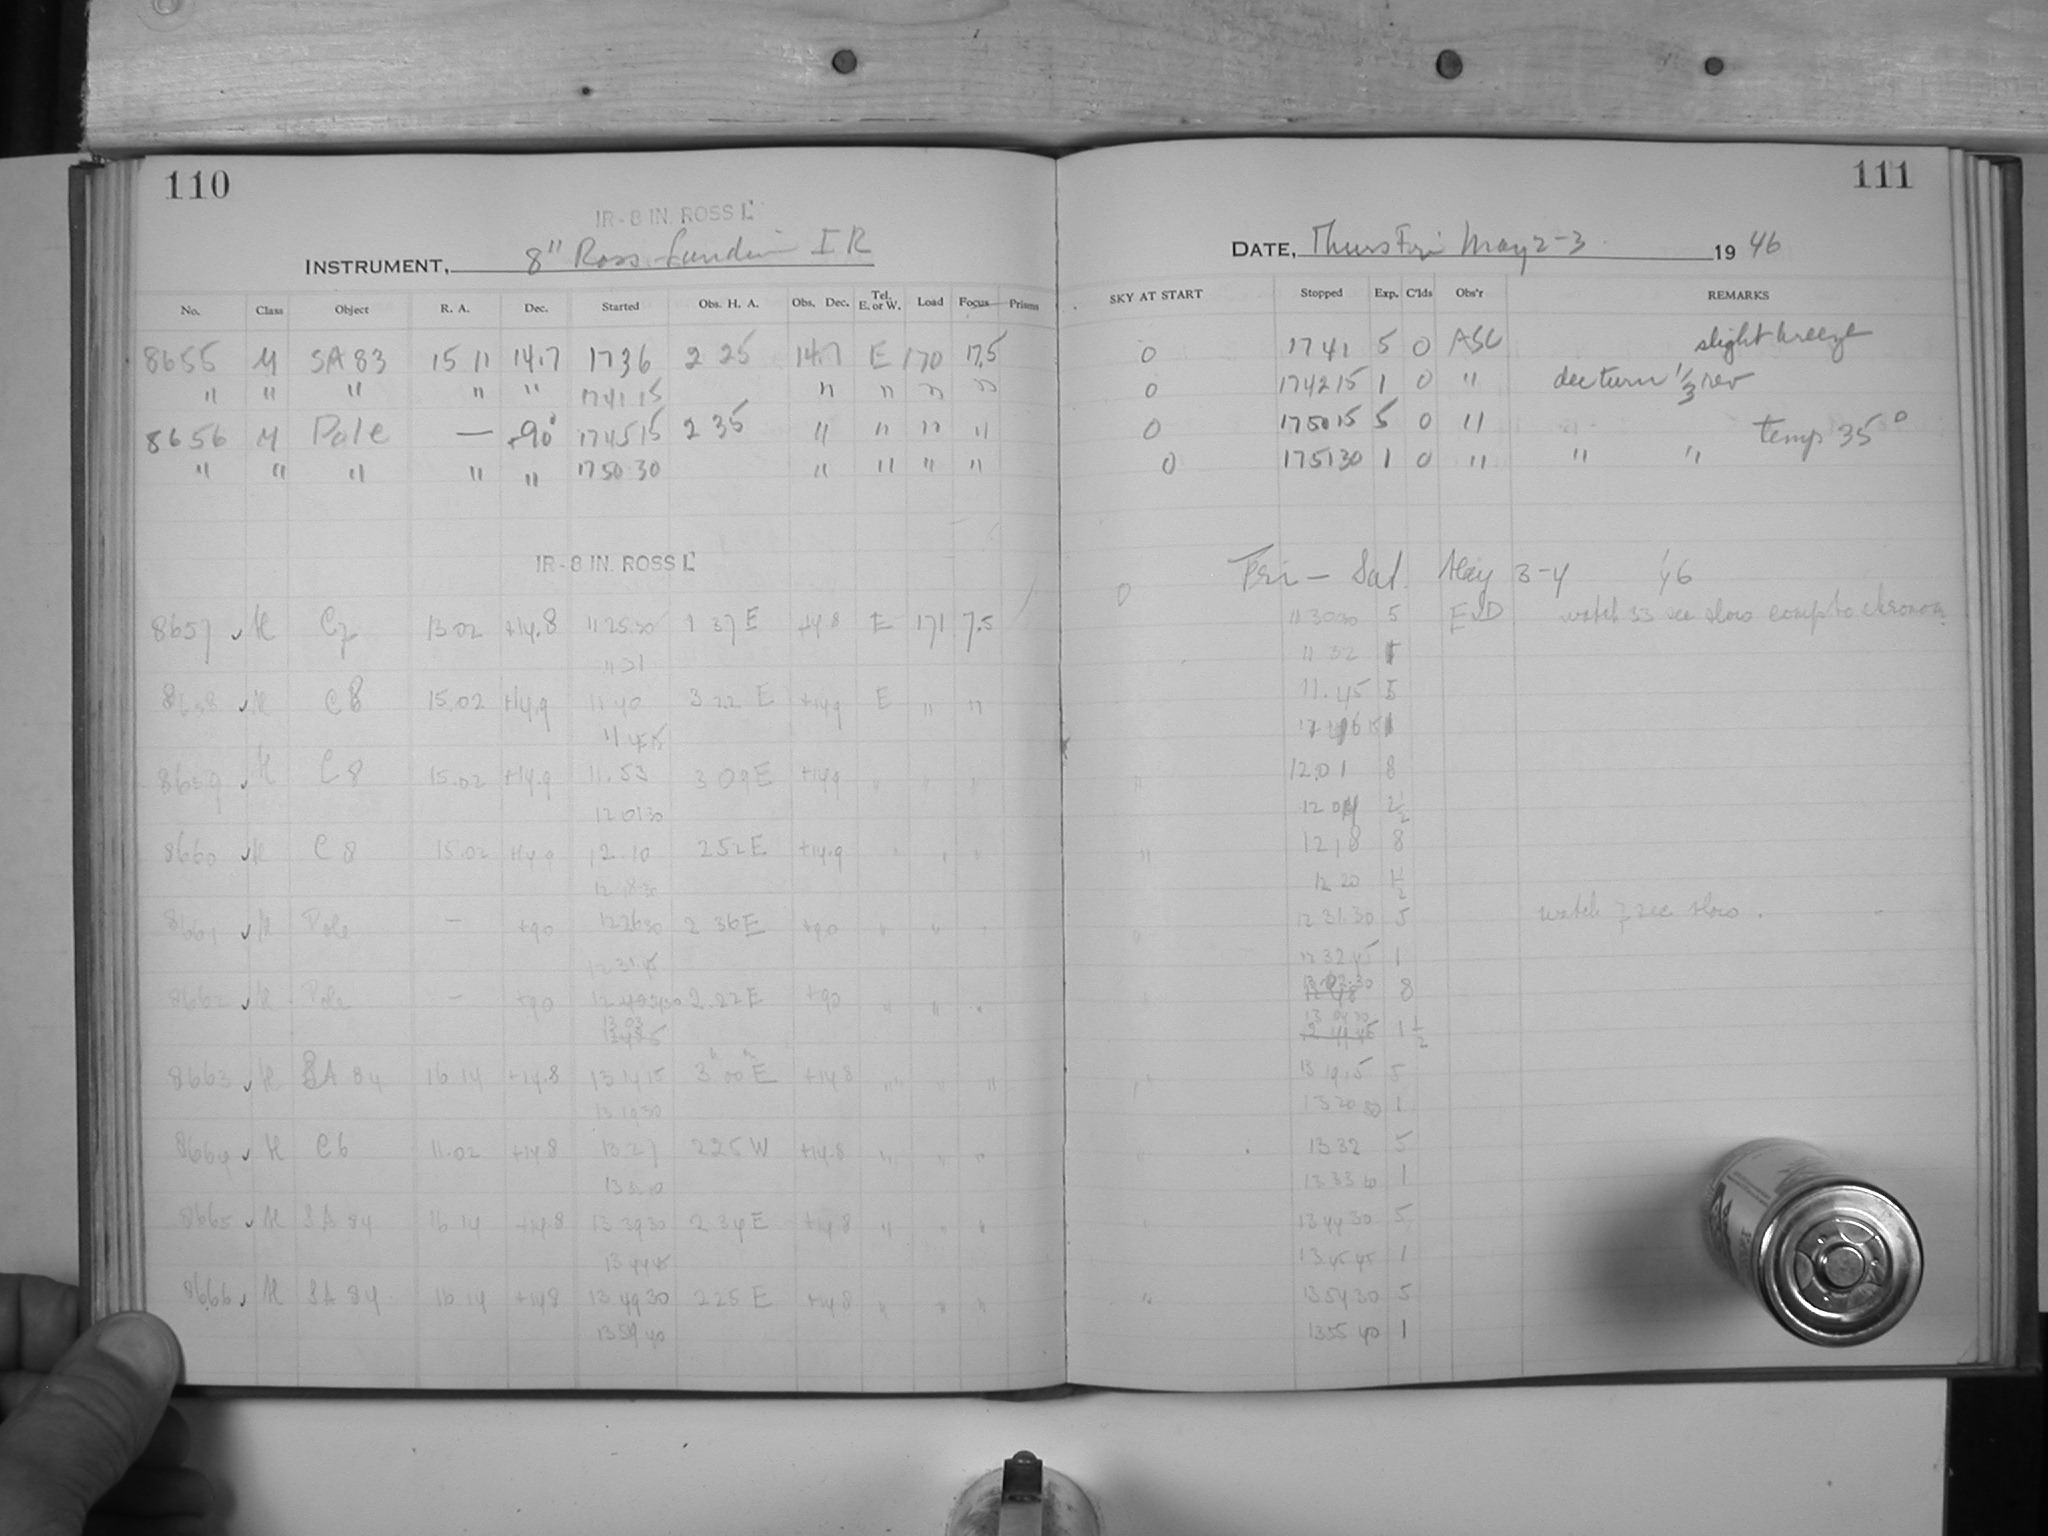 110
IR-8 IN. ROSS L
INSTRUMENT, 8" Ross-Lundin IR
No. Class Object R. A. Dec. Started Obs. H. A. Obs. Dec. Tel. E. or W. Load Focus Prisms
8655 M SA 83 15 11 14.7 1736 2 25 14.7 E 170 17.5
" " " " " 17 41 15 " " " "
8656 M Pole — +90° 17 45 15 2 35 " " " "
" " " " " 17 50 30 " " " "
IR-8 IN. ROSS L
8657 ✓ M C7 13.02 +14.8 11 25 30 1 37 E +14.8 E 171 7.5
11 31
8658 ✓ M C8 15.02 +14.9 11 40 3 22 E +14.9 E " "
11 45 15
8659 ✓ M C8 15.02 +14.9 11.53 3 09 E +14.9 " " "
12 01 30
8660 ✓ M C8 15.02 +14.9 12.10 2 52 E +14.9 " " "
12 18 30
8661 ✓ M Pole — +90 12 26 30 2 36 E +90 " " "
12 31 45
8662 ✓ M Pole — +90 2.22 E +90 " " "
13 03
8663 ✓ M SA 84 16 14 +14.8 13 14 15 3 00 E +14.8 " " "
13 19 30
8664 ✓ M C6 11.02 +14.8 13.27 2 25 W +14.8 " " "
8665 ✓ M SA 84 16 14 +14.8 13 39 30 2 34 E +14.8 " " "
13 44 45
8666 ✓ M SA 84 16 14 +14.8 13 49 30 2 25 E +14.8 " " "
13 54 40
111
DATE, Thurs Fri May 2-3 19 46
SKY AT START Stopped Exp. C'lds Obs'r REMARKS
0 1741 5 0 ASC slight breeze
0 17 42 15 1 0 " dec turn 1/3 rev
0 17 50 15 5 0 " temp 35°
0 17 51 30 1 0 " " "
Fri — Sat. May 3-4 '46
0 11 30 30 5 watch 33 sec slow comp to chronom.
11 32 1
11.45 5
1
12.01 8
12 04 2½
" 12 18 8
12 20 1½
" 12 31 30 5 watch 7 sec slow.
12 32 45 1
8
1½
" 13 19 15 5
13 20 30 1
" 13 32 5
1
" 13 44 30 5
13 45 45 1
" 13 54 30 5
13 55 40 1